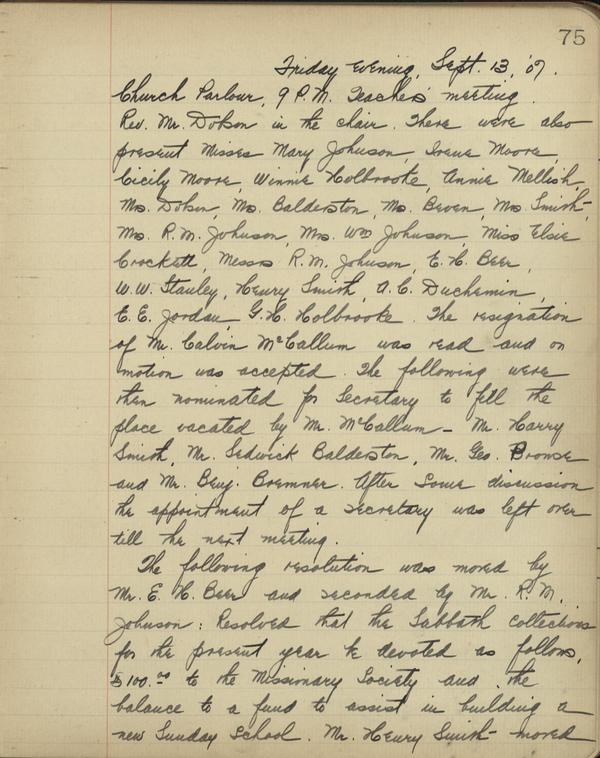 75
Friday evening, Sept. 13, '07.
Church Parlour, 9 P.M. Teachers' meeting.
Rev. Mr. Dobson in the chair. There were also
present Misses Mary Johnson, Irene Moore,
Cicily Moore, Winnie Holbrooke, Annie Mellish,
Mrs. Dobson, Mrs. Balderston, Mrs. Beven, Mrs. Smith
Mrs. R.M. Johnson, Mrs. Wm Johnson, Miss Elsie
Crockett, Messrs R.M. Johnson, E.H. Beer,
W.W. Stanley, Henry Smith, A.C. Duchemin,
E.E. Jordan, G.H. Holbrooke. The resignation
of Mr. Calvin McCallum was read and on
motion was accepted. The following were
then nominated for Secretary to fill the
place vacated by Mr. McCallum – Mr. Harry
Smith, Mr. Sedwick Balderston, Mr. Geo. Prowse
and Mr. Benj. Bremner. After some discussion
the appointment of a secretary was left over
till the next meeting.
The following resolution was moved by
Mr. E. H. Beer and seconded by Mr. R. M.
Johnson: Resolved that the Sabbath collections
for the present year be devoted as follows,
$100.00 to the Missionary Society and the
balance to a fund to assist in building a
new Sunday School. Mr. Henry Smith moved